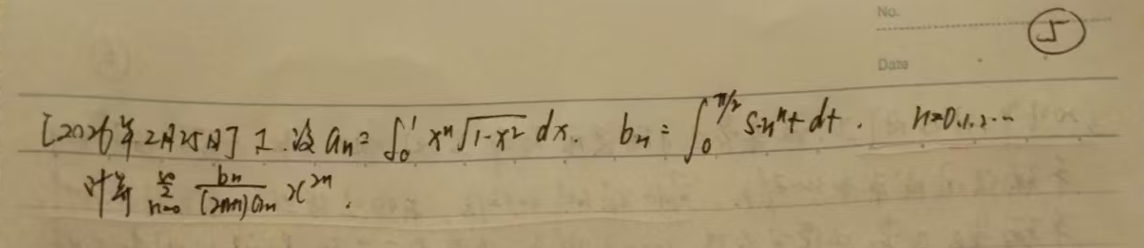 No.
⑤
Date
[2026年2月25日] 1. 设 aₙ = ∫₀¹ xⁿ√(1-x²) dx. bₙ = ∫₀^(π/2) sinⁿt dt. n=0.1.2...
计算 ∑_(n=0)^∞ bₙ/((2n+1)aₙ) x²ⁿ.